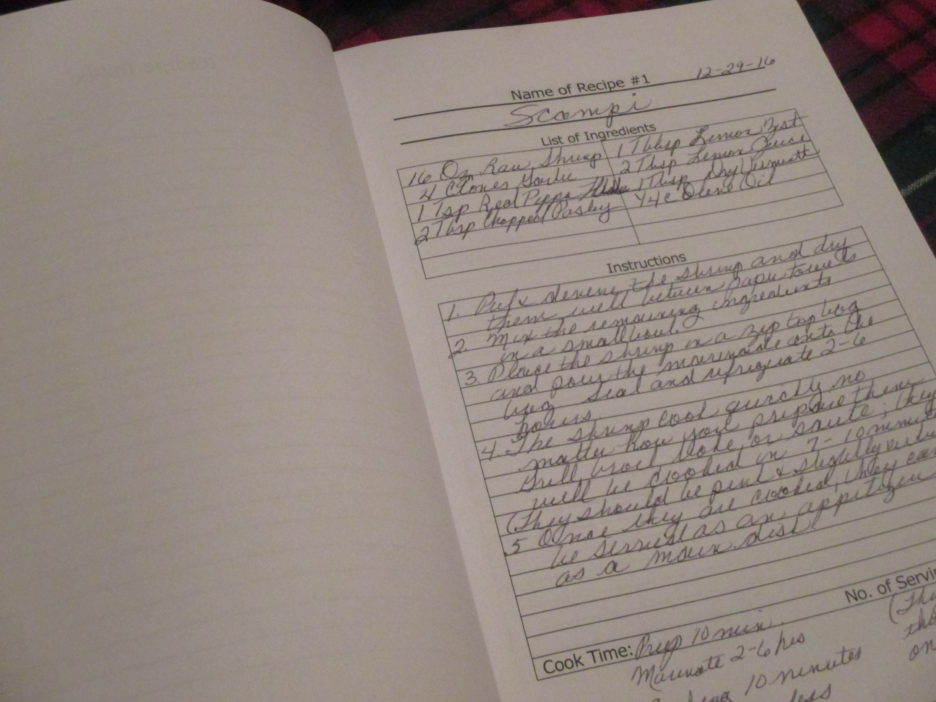 12-29-16
Name of Recipe #1
Scampi
List of Ingredients
16 Oz Raw Shrimp
4 Cloves Garlic
1 Tsp Red Pepper
2 Tbsp Chopped Parsley
1 Tbsp Lemon Zest
2 Tbsp Lemon Juice
1 Tbsp Dry Vermouth
1/4 c Olive Oil
Instructions
1. Peel & devein the shrimp and dry
them well between paper towels
2. Mix the remaining ingredients
in a small bowl
3. Place the shrimp in a zip top bag
and pour the marinade onto the
bag Seal and refrigerate 2-6
hours
4. The shrimp cook quickly no
matter how you prepare them
Grill broil bake or saute, they
will be cooked in 7-10 minutes
(They should be pink & slightly
5 Once they are cooked, they can
be served as an appetizer
as a main dish!
No. of Servin
Cook Time: Prep 10 min.
Marinate 2-6 hrs
10 minutes
less
on